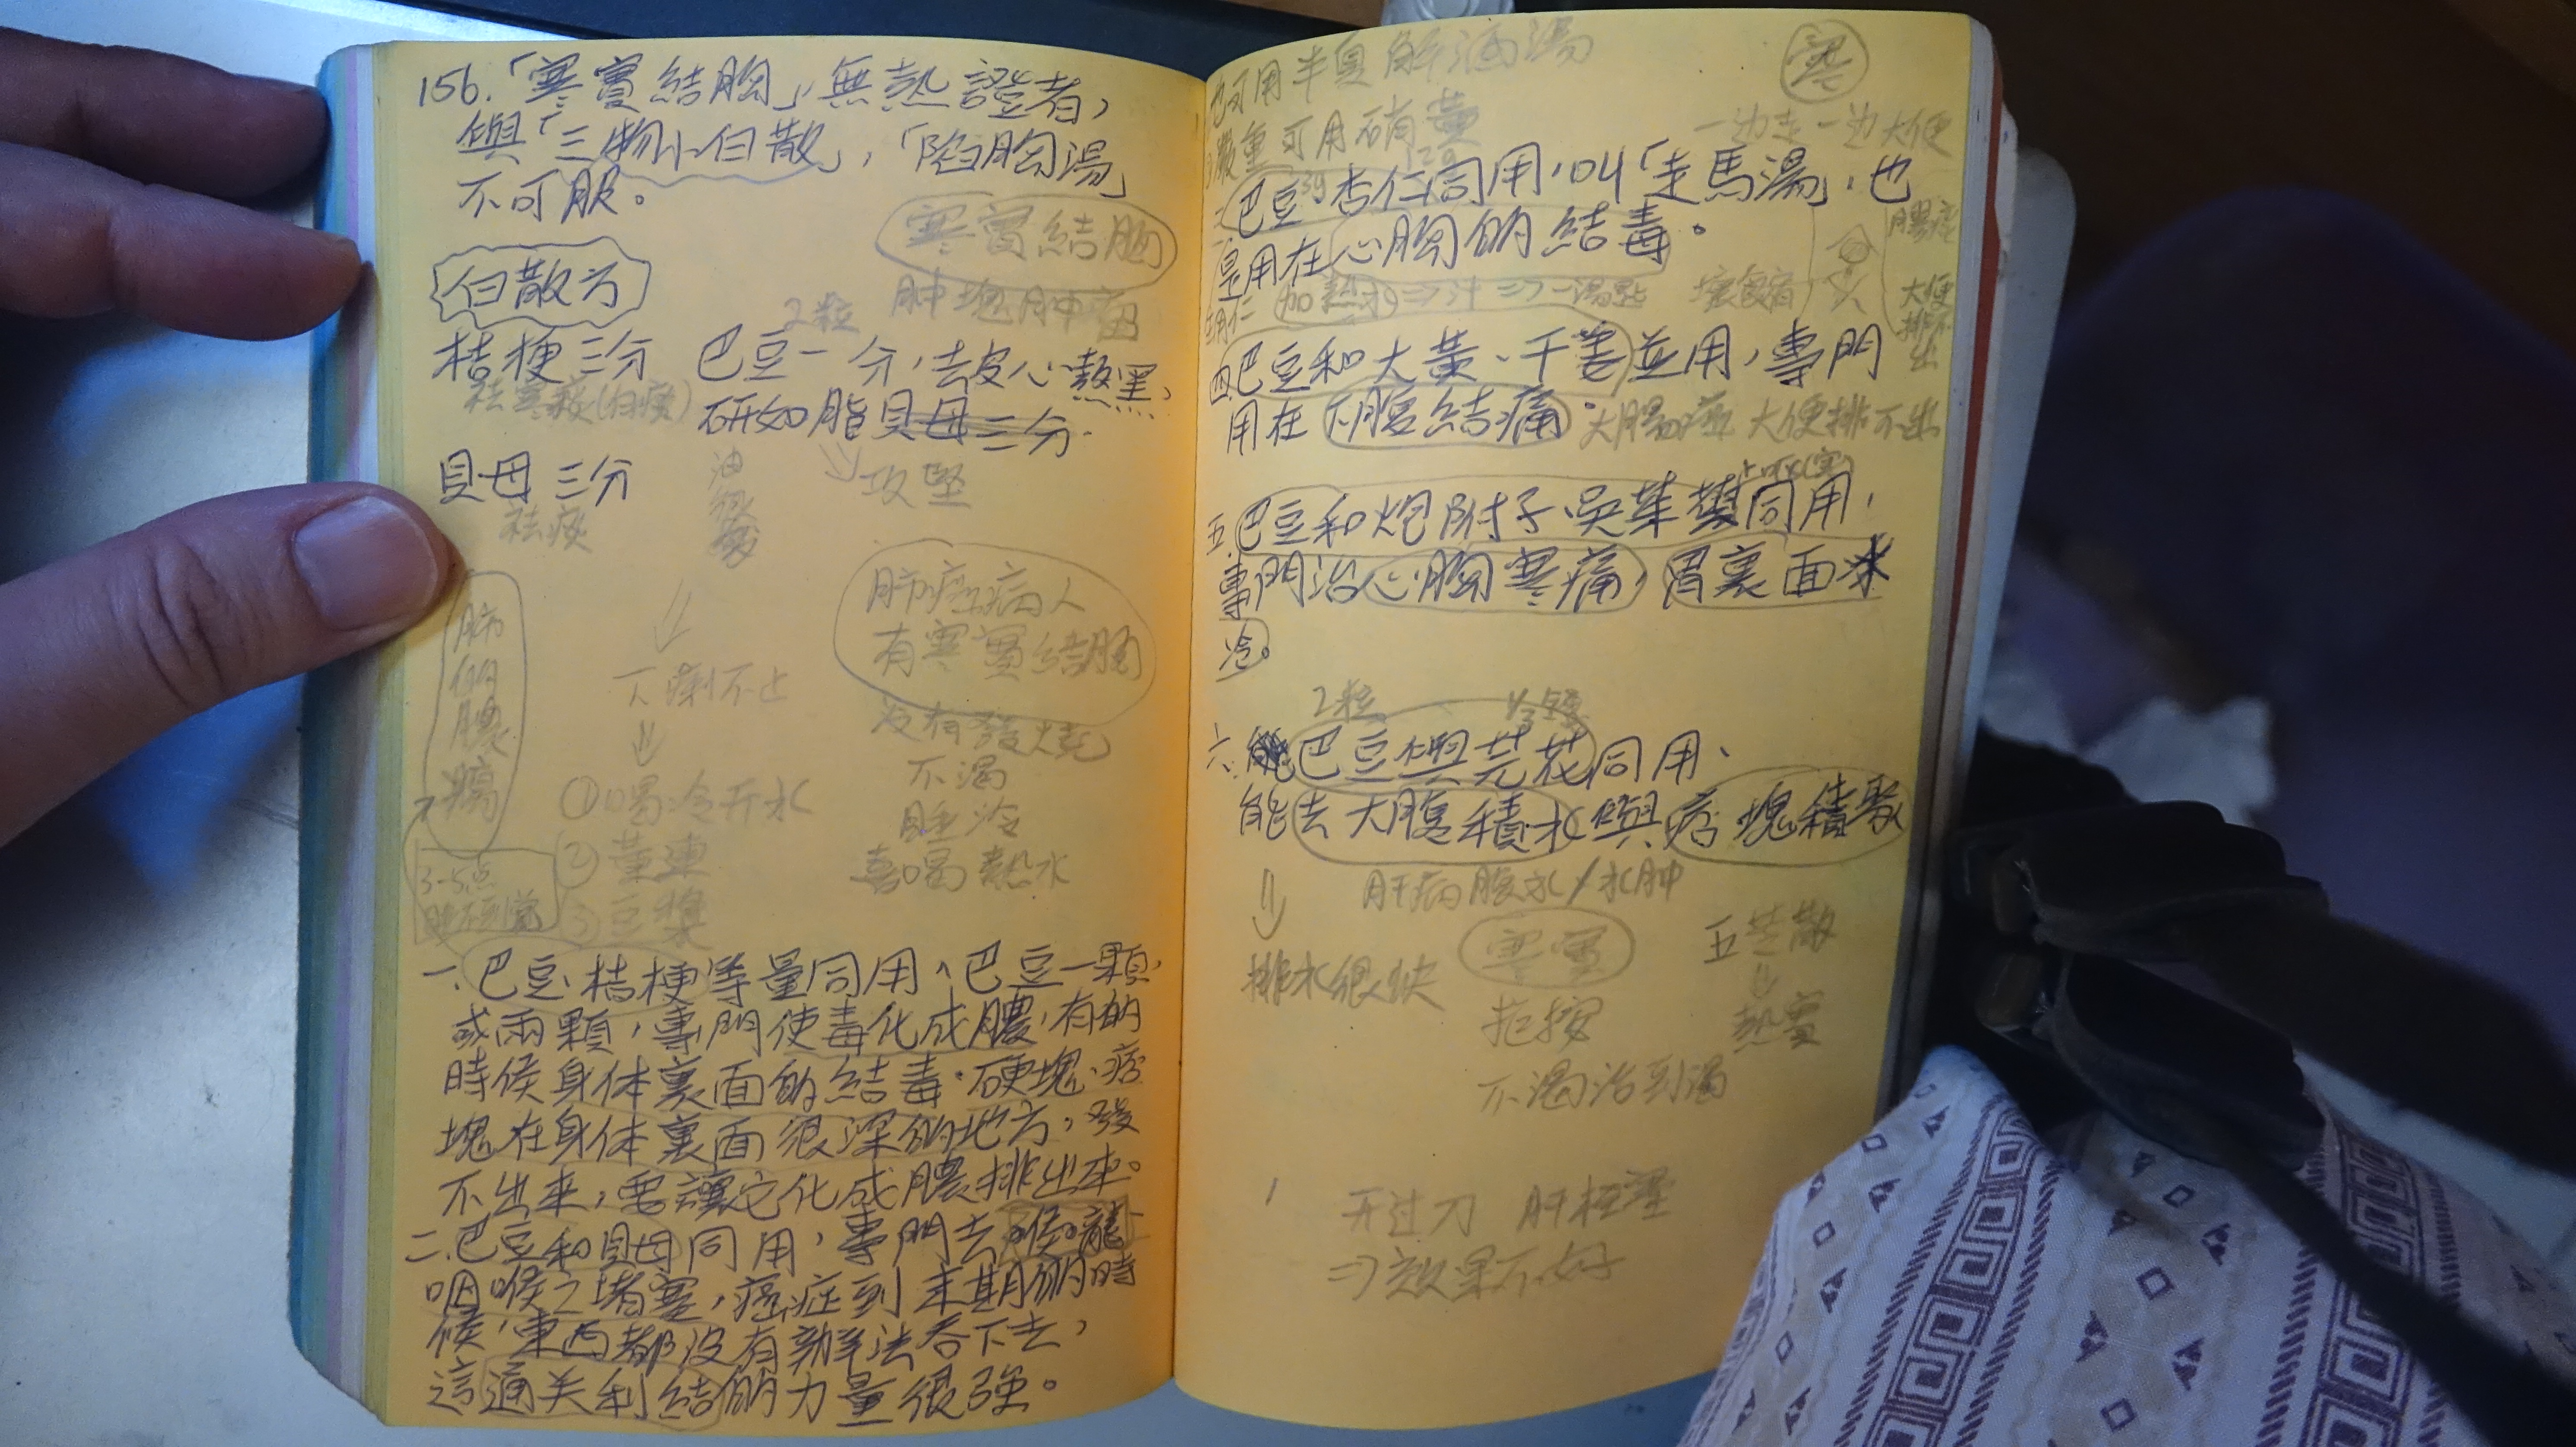 156.「寒實結胸」無熱證者，
與「三物小白散」，「陷胸湯」
不可服。
寒實結胸
肿塊肿瘤
白散方
2粒
桔梗三分 巴豆一分，去皮心熬黑，
祛寒痰(白痰)
研如脂貝母三分.
貝母 三分
祛痰
油
很
攻堅
肺癌病人
有寒實結胸
肺
的
膿
瘍
下痢不止
沒有發燒
不渴
①喝冷开水
睡冷
②黃連
喜喝熱水
3-5点
③豆漿
一.巴豆.桔梗等量同用、巴豆一顆,
或兩顆，專門使毒化成膿，有的
時候身体裏面的結毒.硬塊.痞
塊在身体裏面很深的地方，發
不出來，要讓它化成膿排出來。
二.巴豆和貝母同用，專門去喉嚨
咽喉之堵塞，癌症到末期的時
候，東西都沒有辦法吞下去，
這通关利結的力量很強。
也可用半夏解滴湯
嚴重可用硝黃
一边走一边大便
巴豆杏仁同用，叫「走馬湯」，也
是用在心胸的結毒。
加熱水⇒汁⇒
腸癌
大便
排不
出
四巴豆和大黃、干姜並用，專門
用在下腹結痛. 大腸癌 大便排不出
五.巴豆和炮附子.吳茱萸同用，
專門治心胸寒痛，胃裏面冰
冷。
2粒
六.巴豆與芫花同用、
能去大腹積水與痞塊積聚
肝病腹水/水肿
排水很快
寒實
五苓散
拒按
熱實
不渴治到渴
开过刀 肝栓塞
⇒效果不好